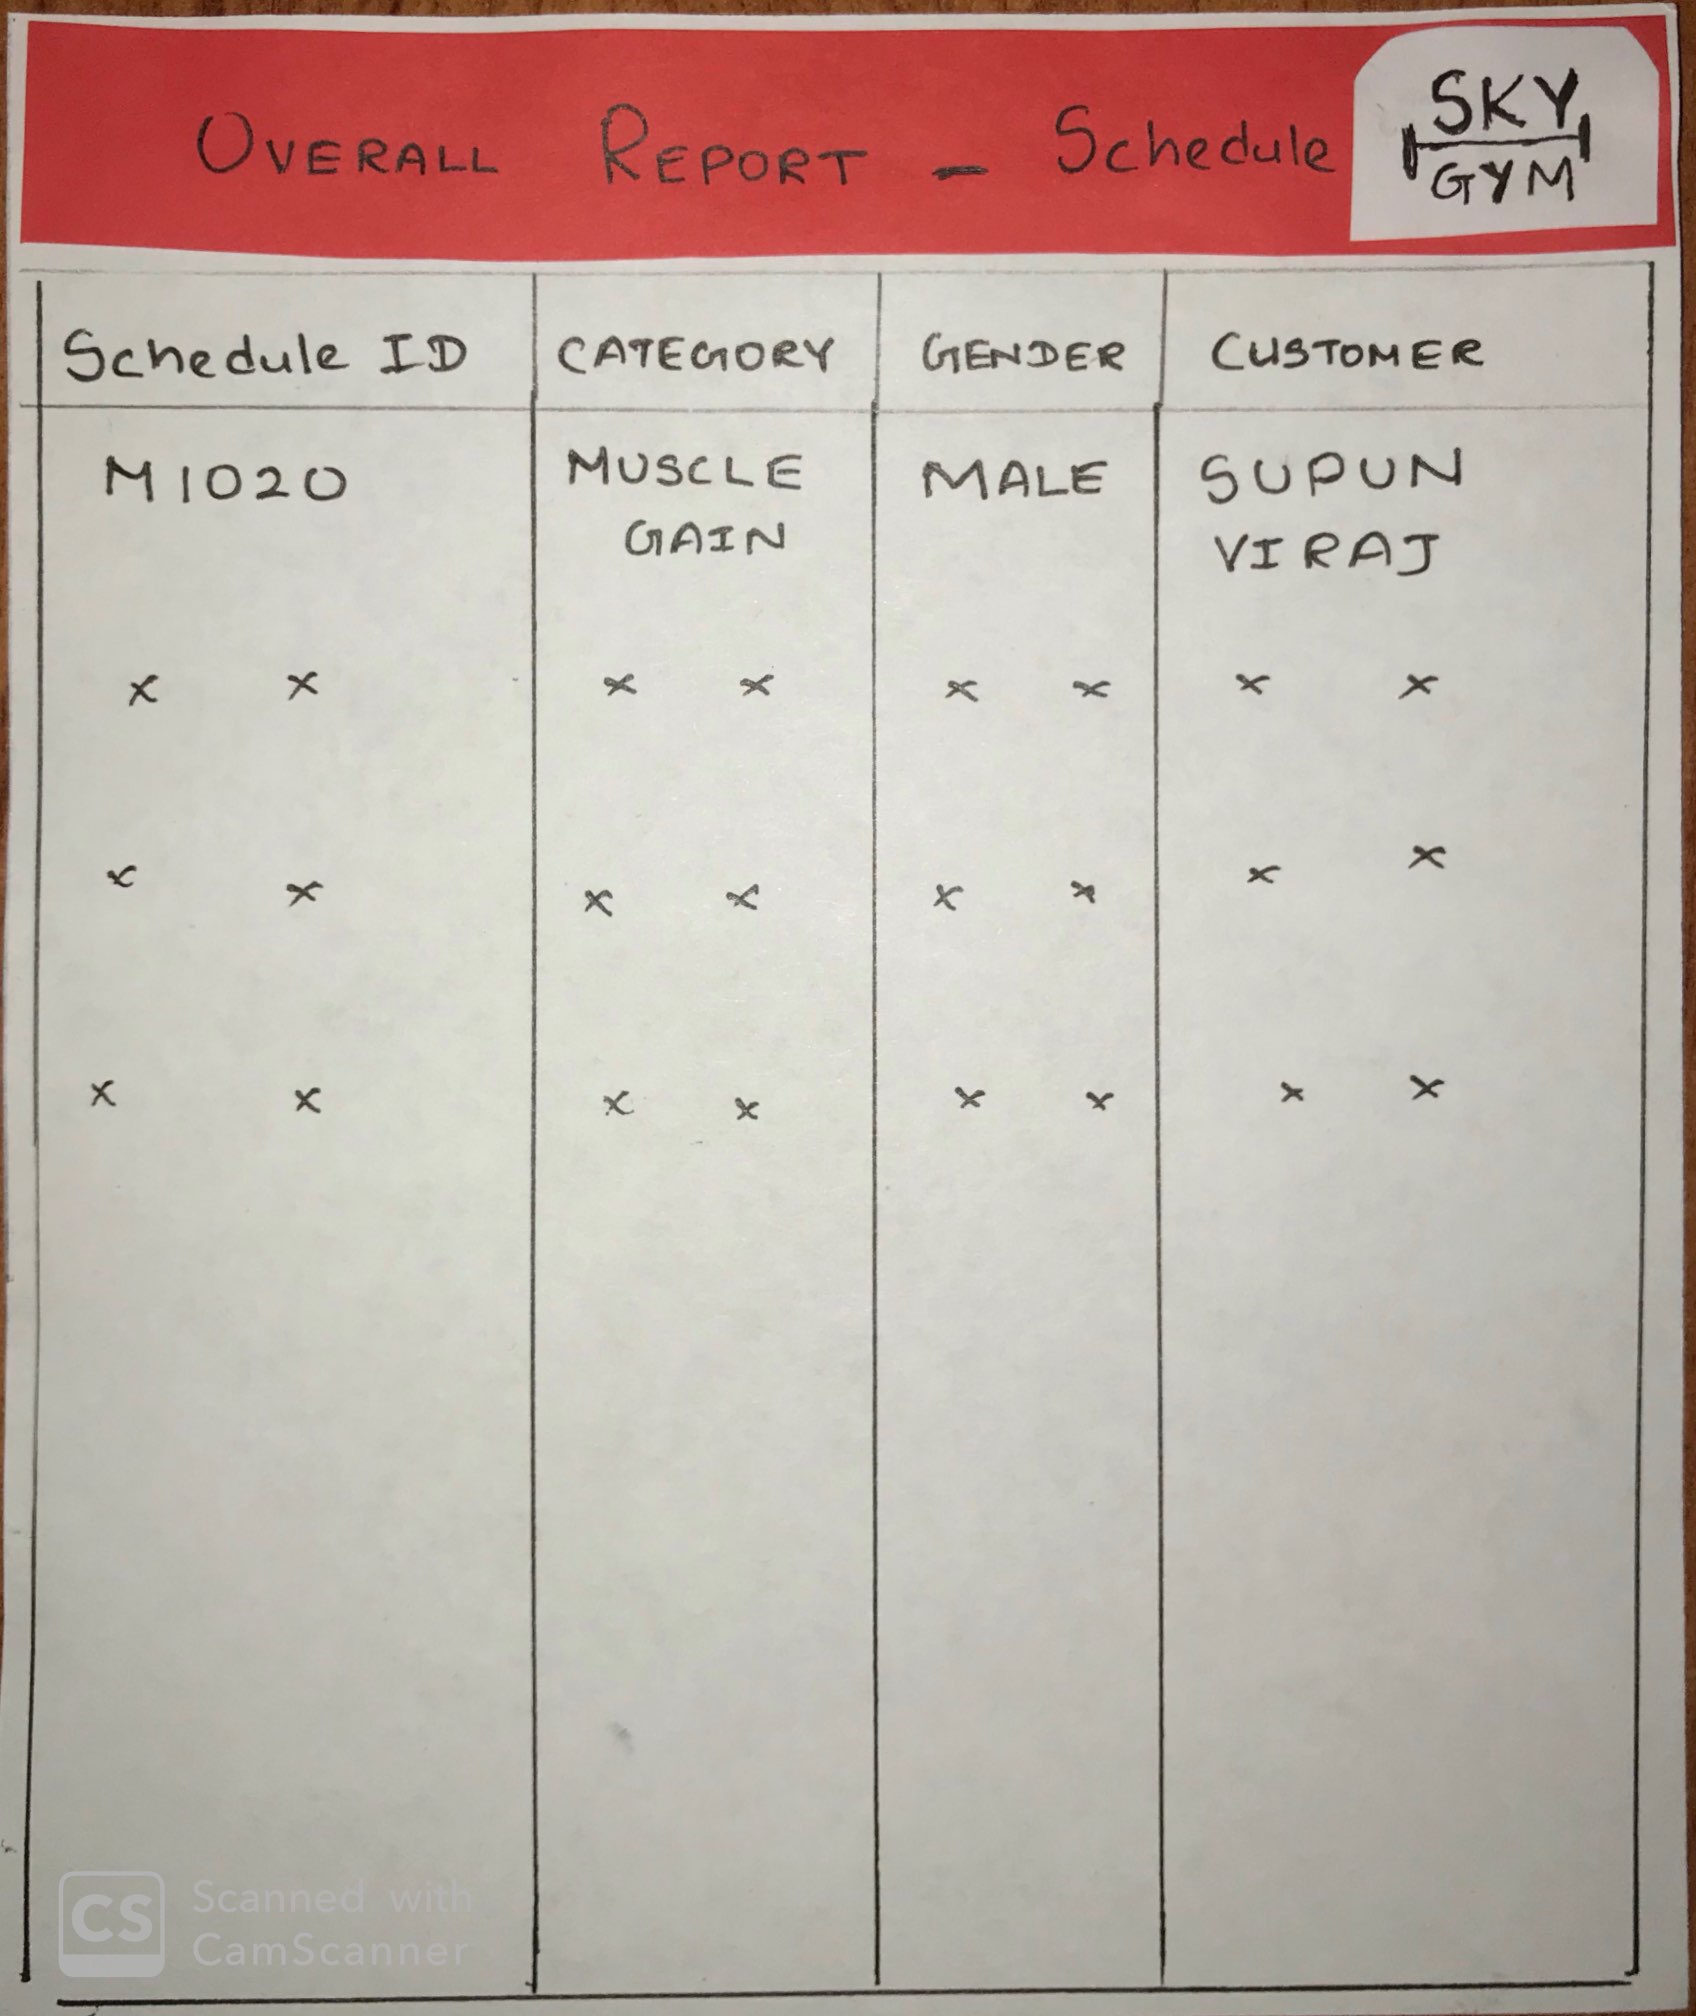 OVERALL REPORT - Schedule
SKY
GYM
Schedule ID CATEGORY GENDER CUSTOMER
M1020 MUSCLE MALE SUPUN
GAIN VIRAJ
x x x x x x x x
x x x x x x x x
x x x x x x x x
CS Scanned with
CamScanner